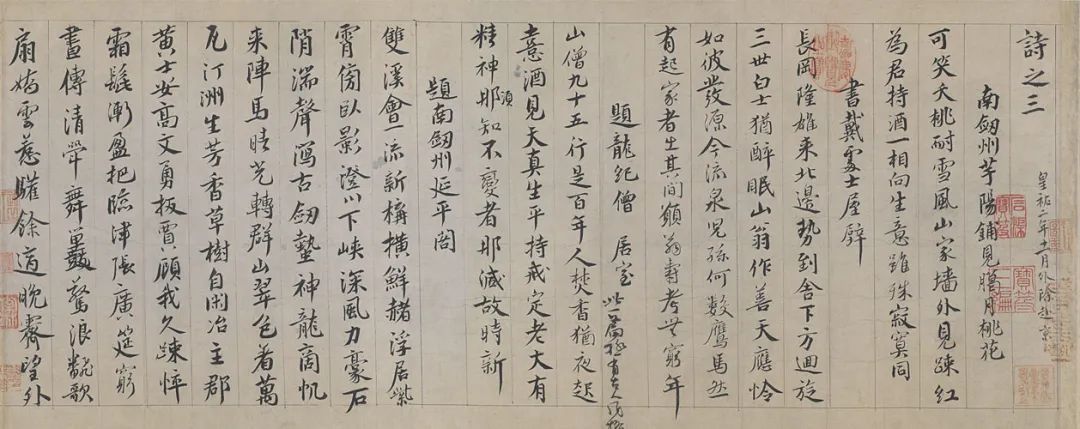 詩之三
皇祐二年十一月外除赴京
南劒州芋陽鋪見臘月桃花
可笑夭桃耐雪風山家墻外見疎紅
為君持酒一相向生意雖殊寂寞同
書戴處士屋壁
長岡隆雄來北邊勢到舍下方迴旋
三世白士猶醉眠山翁作善天應憐
如彼發源今流泉兒孫何數鷹馬然
有起家者生其間願翁壽考無窮年
題龍紀僧居室
此一篇極有古人風格
山僧九十五行是百年人焚香猶夜起
憙酒見天真生平持戒定老大有
精神須耶知不變者那減故時新
題南劒州延平閣
雙溪會一流新構橫鮮赭浮居紫
霄傍臥影澄川下峽深風力豪石
陗湍聲瀉古劒蟄神龍商帆
來陣馬晴光轉群山翠色着萬
瓦汀洲生芳香草樹自閑冶主郡
黃士安高文勇扳賈顧我久疎悴
霜髭漸盈把臨津張廣筵窮
晝傳清斝舞鼉驚浪翻歌
扇嬌雲惹驩餘適晚霽望外